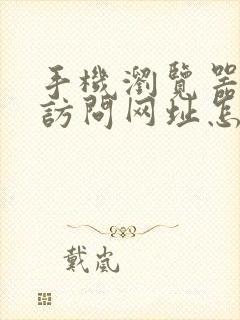 手機瀏覽器
訪問网址怎
戴嵐